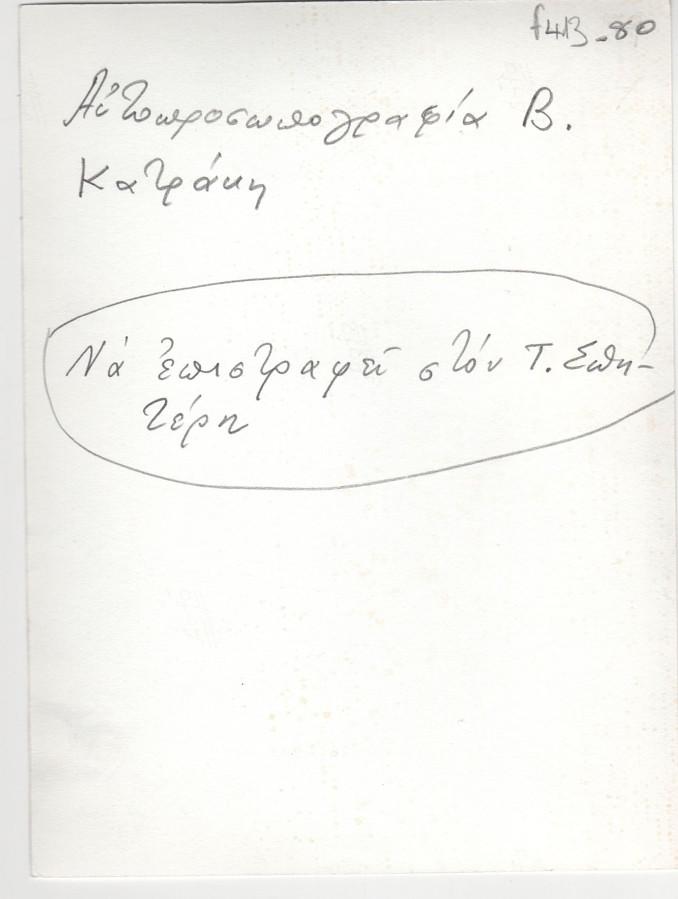 f413-80
Αὐτοπροσωπογραφία Β.
Κατράκη
Νά ἐπιστραφεῖ στόν Τ. Σπη-
τέρη